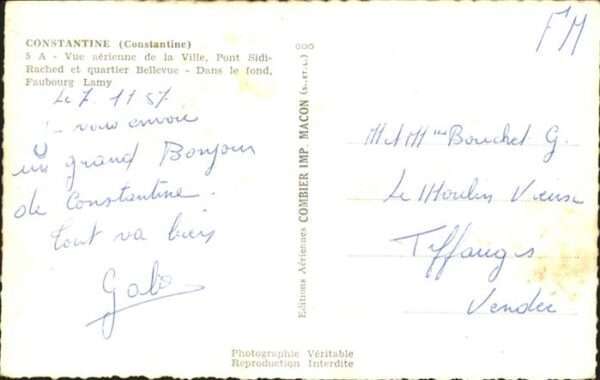 CONSTANTINE (Constantine)
5 A - Vue aérienne de la Ville, Pont Sidi-
Rached et quartier Bellevue - Dans le fond,
Faubourg Lamy
Le 7. 11 57
vous envoie
un grand Bonjour
de Constantine.
tout va bien
Galo
Editions Aériennes COMBIER IMP. MACON (S.-ET-L.)
FM
M et Mme Bouchet G.
Le Moulin Vieux
Tiffauges
Vendée
Photographie Véritable
Reproduction Interdite